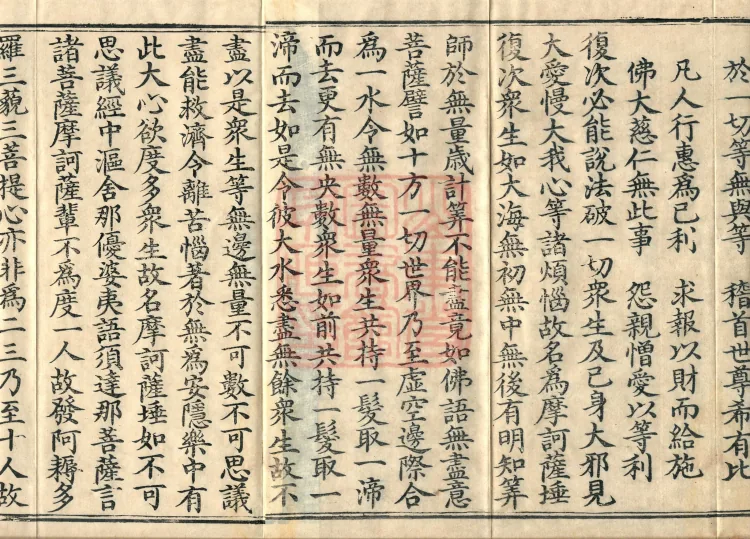 於一切等無與等　稽首世尊希有比
凡人行惠爲己利　求報以財而給施
佛大慈仁無此事　怨親憎愛以等利
復次必能說法破一切衆生及己身大邪見
大愛慢大我心等諸煩惱故名爲摩訶薩埵
復次衆生如大海無初無中無後有明知筭
師於無量歲計筭不能盡竟如佛語無盡意
菩薩譬如十方一切世界乃至虛空邊際合
爲一水令無數無量衆生共持一髮取一渧
而去更有無央數衆生如前共持一髮取一
渧而去如是令彼大水悉盡無餘衆生故不
盡以是衆生等無邊無量不可數不可思議
盡能救濟令離苦惱著於無爲安隱樂中有
此大心欲度多衆生故名摩訶薩埵如不可
思議經中漚舍那優婆夷語須達那菩薩言
諸菩薩摩訶薩輩不爲度一人故發阿耨多
羅三藐三菩提心亦非爲二三乃至十人故